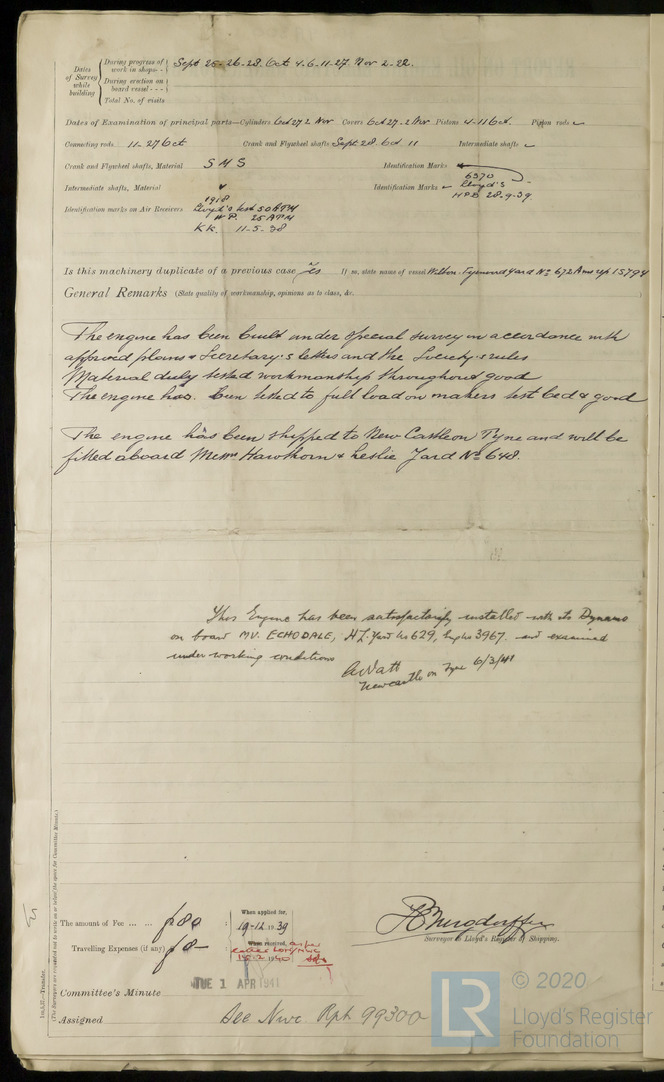 Dates of Survey while building
During progress of work in shops - - Sept 25-26-28. Oct 4.6.11-27 Nov 2-22.
During erection on board vessel - - -
Total No. of visits
Dates of Examination of principal parts—Cylinders Oct 27 2 Nov Covers Oct 27-2 Nov Pistons 4-11 Oct. Piston rods
Connecting rods 11-27 Oct Crank and Flywheel shafts Sept. 28. Oct 11 Intermediate shafts
Crank and Flywheel shafts, Material S M S Identification Marks
6370
Intermediate shafts, Material Identification Marks Lloyd's
HPB 28-9-39
1918
Identification marks on Air Receivers Lloyd's test 50 ATM
W.P. 25 ATM
K.K. 11-5-38
Is this machinery duplicate of a previous case Yes If so, state name of vessel Wilton-Fijenoord Yard No 672 15794
General Remarks (State quality of workmanship, opinions as to class, &c.
The engine has been built under special survey in accordance with
approved plans & Secretary's letters and the Society's rules
Material duly tested workmanship throughout good
The engine has been tested to full load on makers test bed & good
The engine has been shipped to New Castle on Tyne and will be
fitted aboard Messrs Hawthorn & Leslie Yard No 648.
This Engine has been satisfactorily installed with its Dynamo
on board MV. ECHODALE, HL. Yard No 629, Eng No 3967. and examined
under working conditions
A Watt
Newcastle on Tyne 6/3/41
The amount of Fee ... ... £80
When applied for, 19-12-1939
Travelling Expenses (if any) £8-
When received,
15-2 1940
Surveyor to Lloyd's Register of Shipping.
TUE 1 APR 1941
Committee's Minute
Assigned See Nwc Rpt 99300
Im.4.37.—Transfer.
(The Surveyors are requested not to write on or below the space for Committee Minute.)
© 2020
LR
Lloyd's Register
Foundation